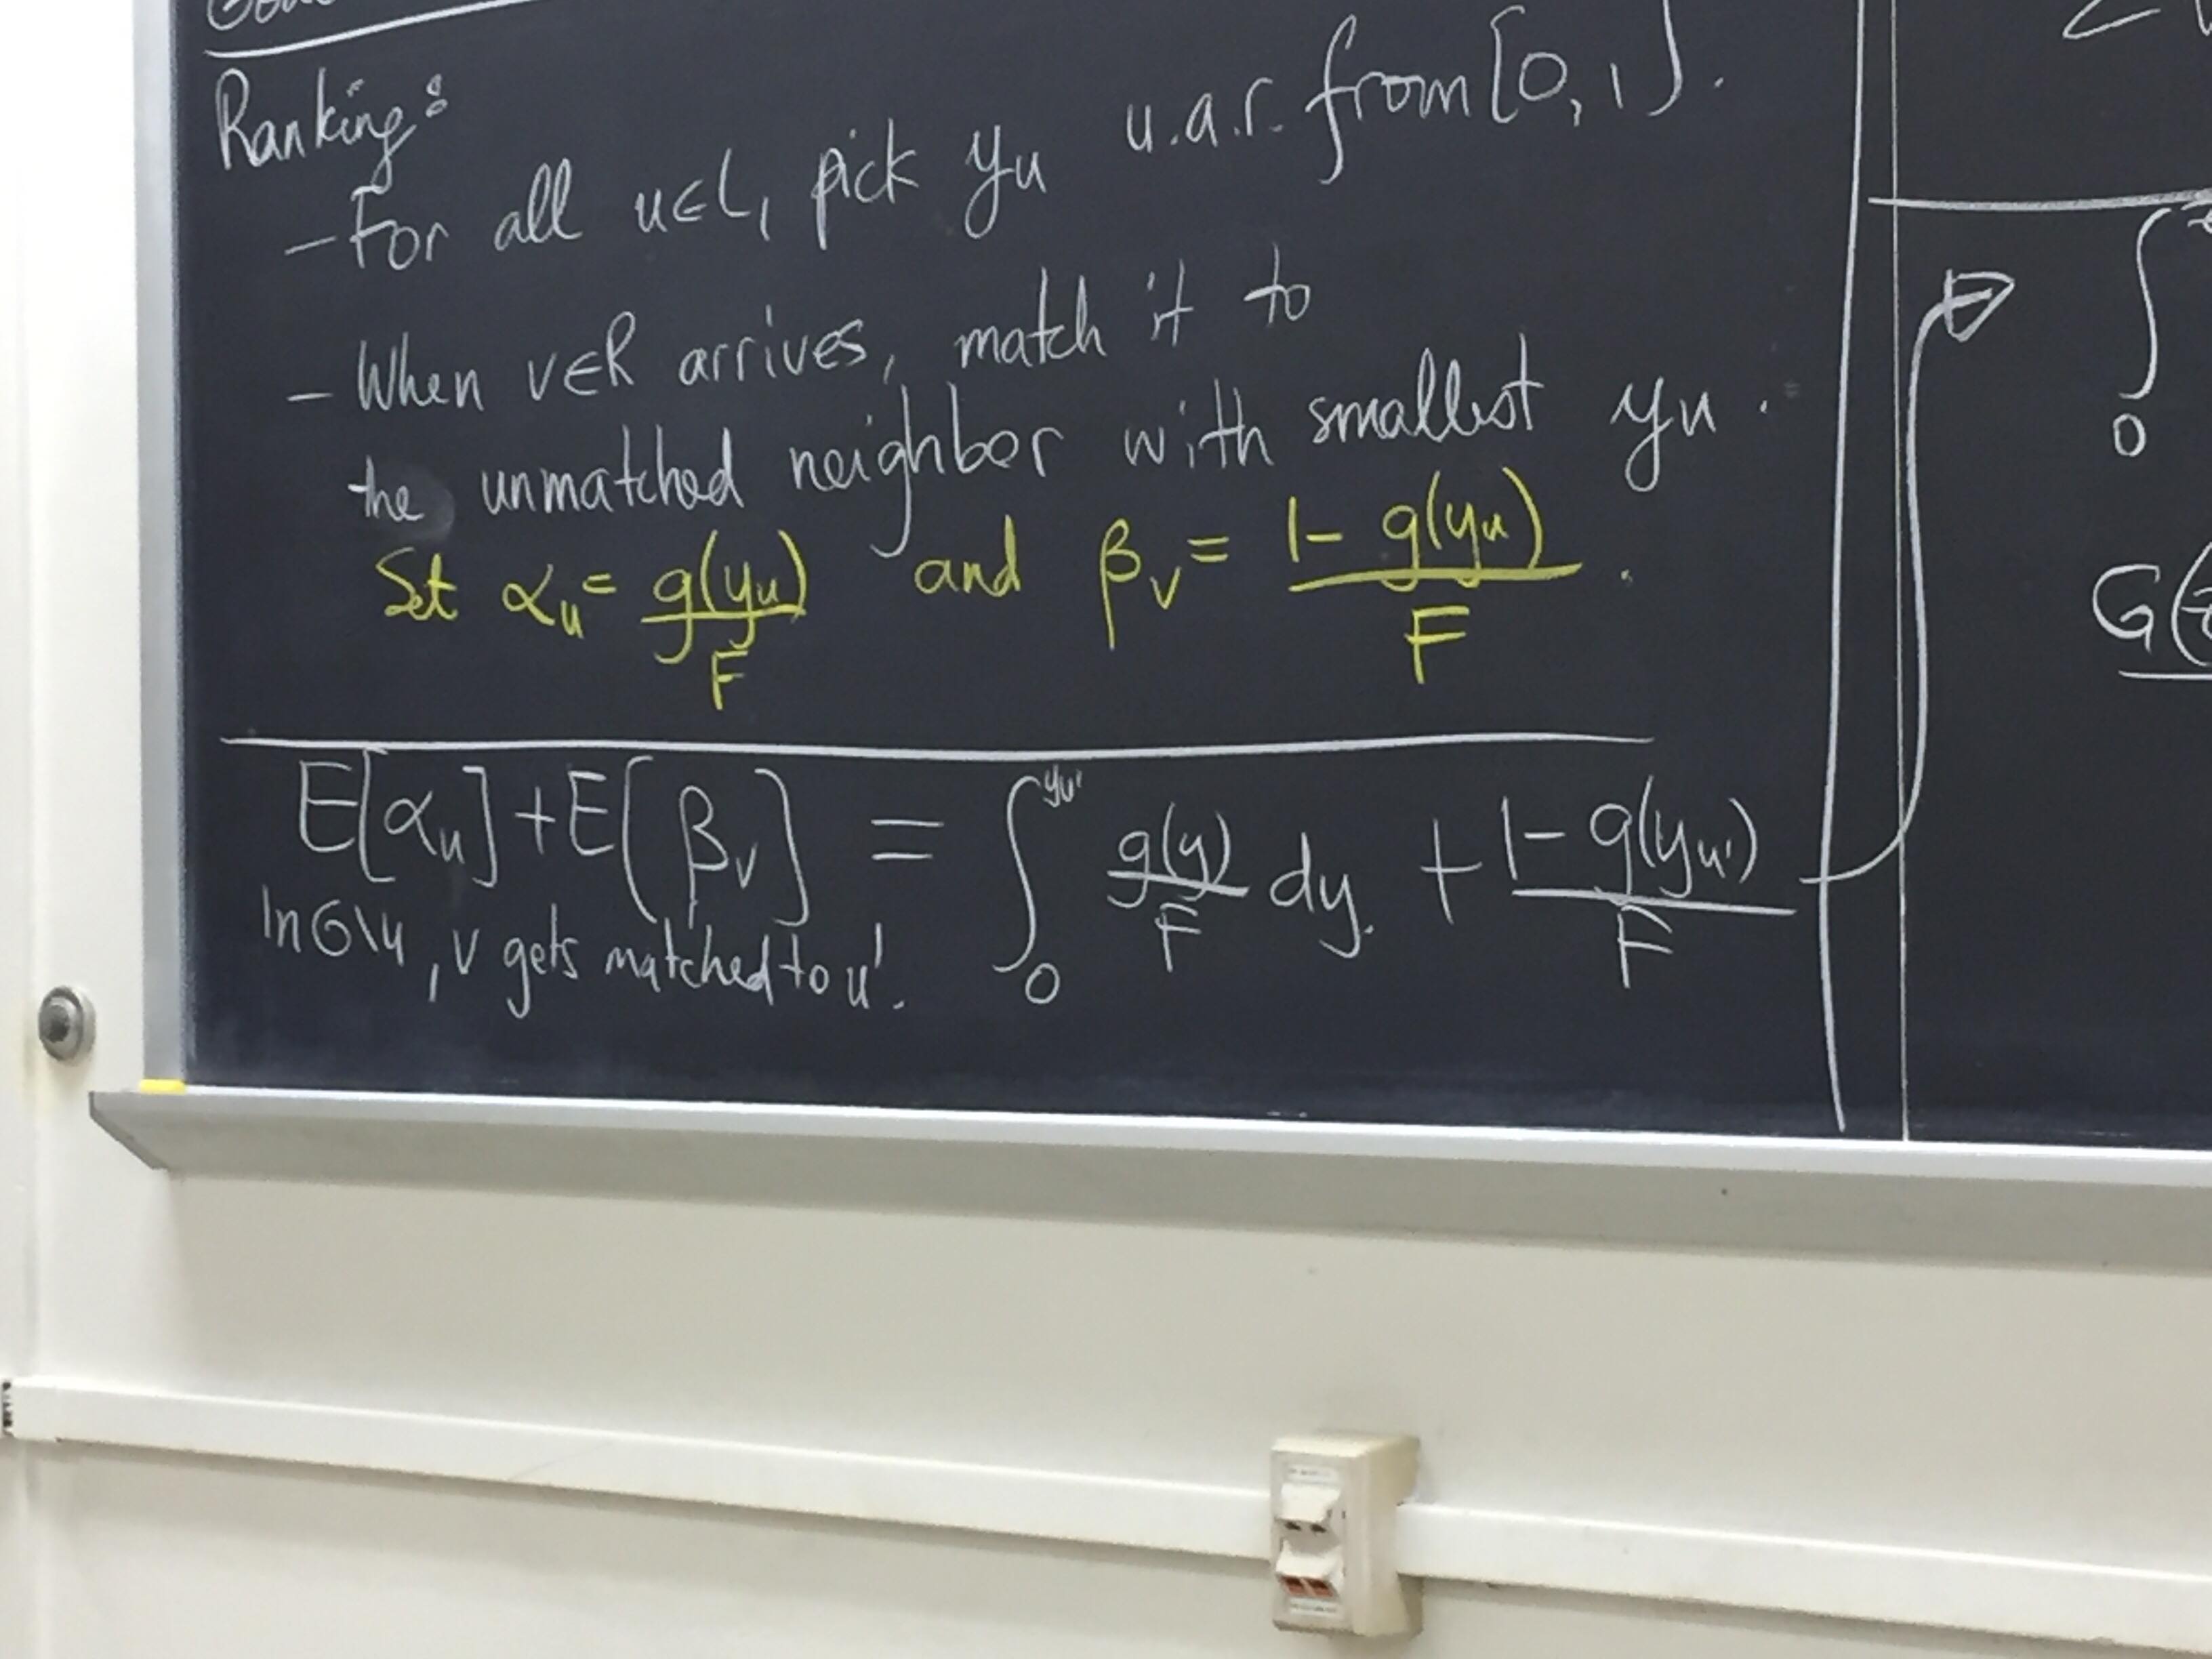 Ranking:
- For all u∈L, pick y_u u.a.r. from [0,1].
- When v∈R arrives, match it to
the unmatched neighbor with smallest y_u.
Set α_u = g(y_u)/F and β_v = (1 - g(y_u))/F.
E[α_u] + E[β_v] = ∫_0^{y_u'} g(y)/F dy. + (1 - g(y_u'))/F
In G\u, v gets matched to u'.
∫
0
G(